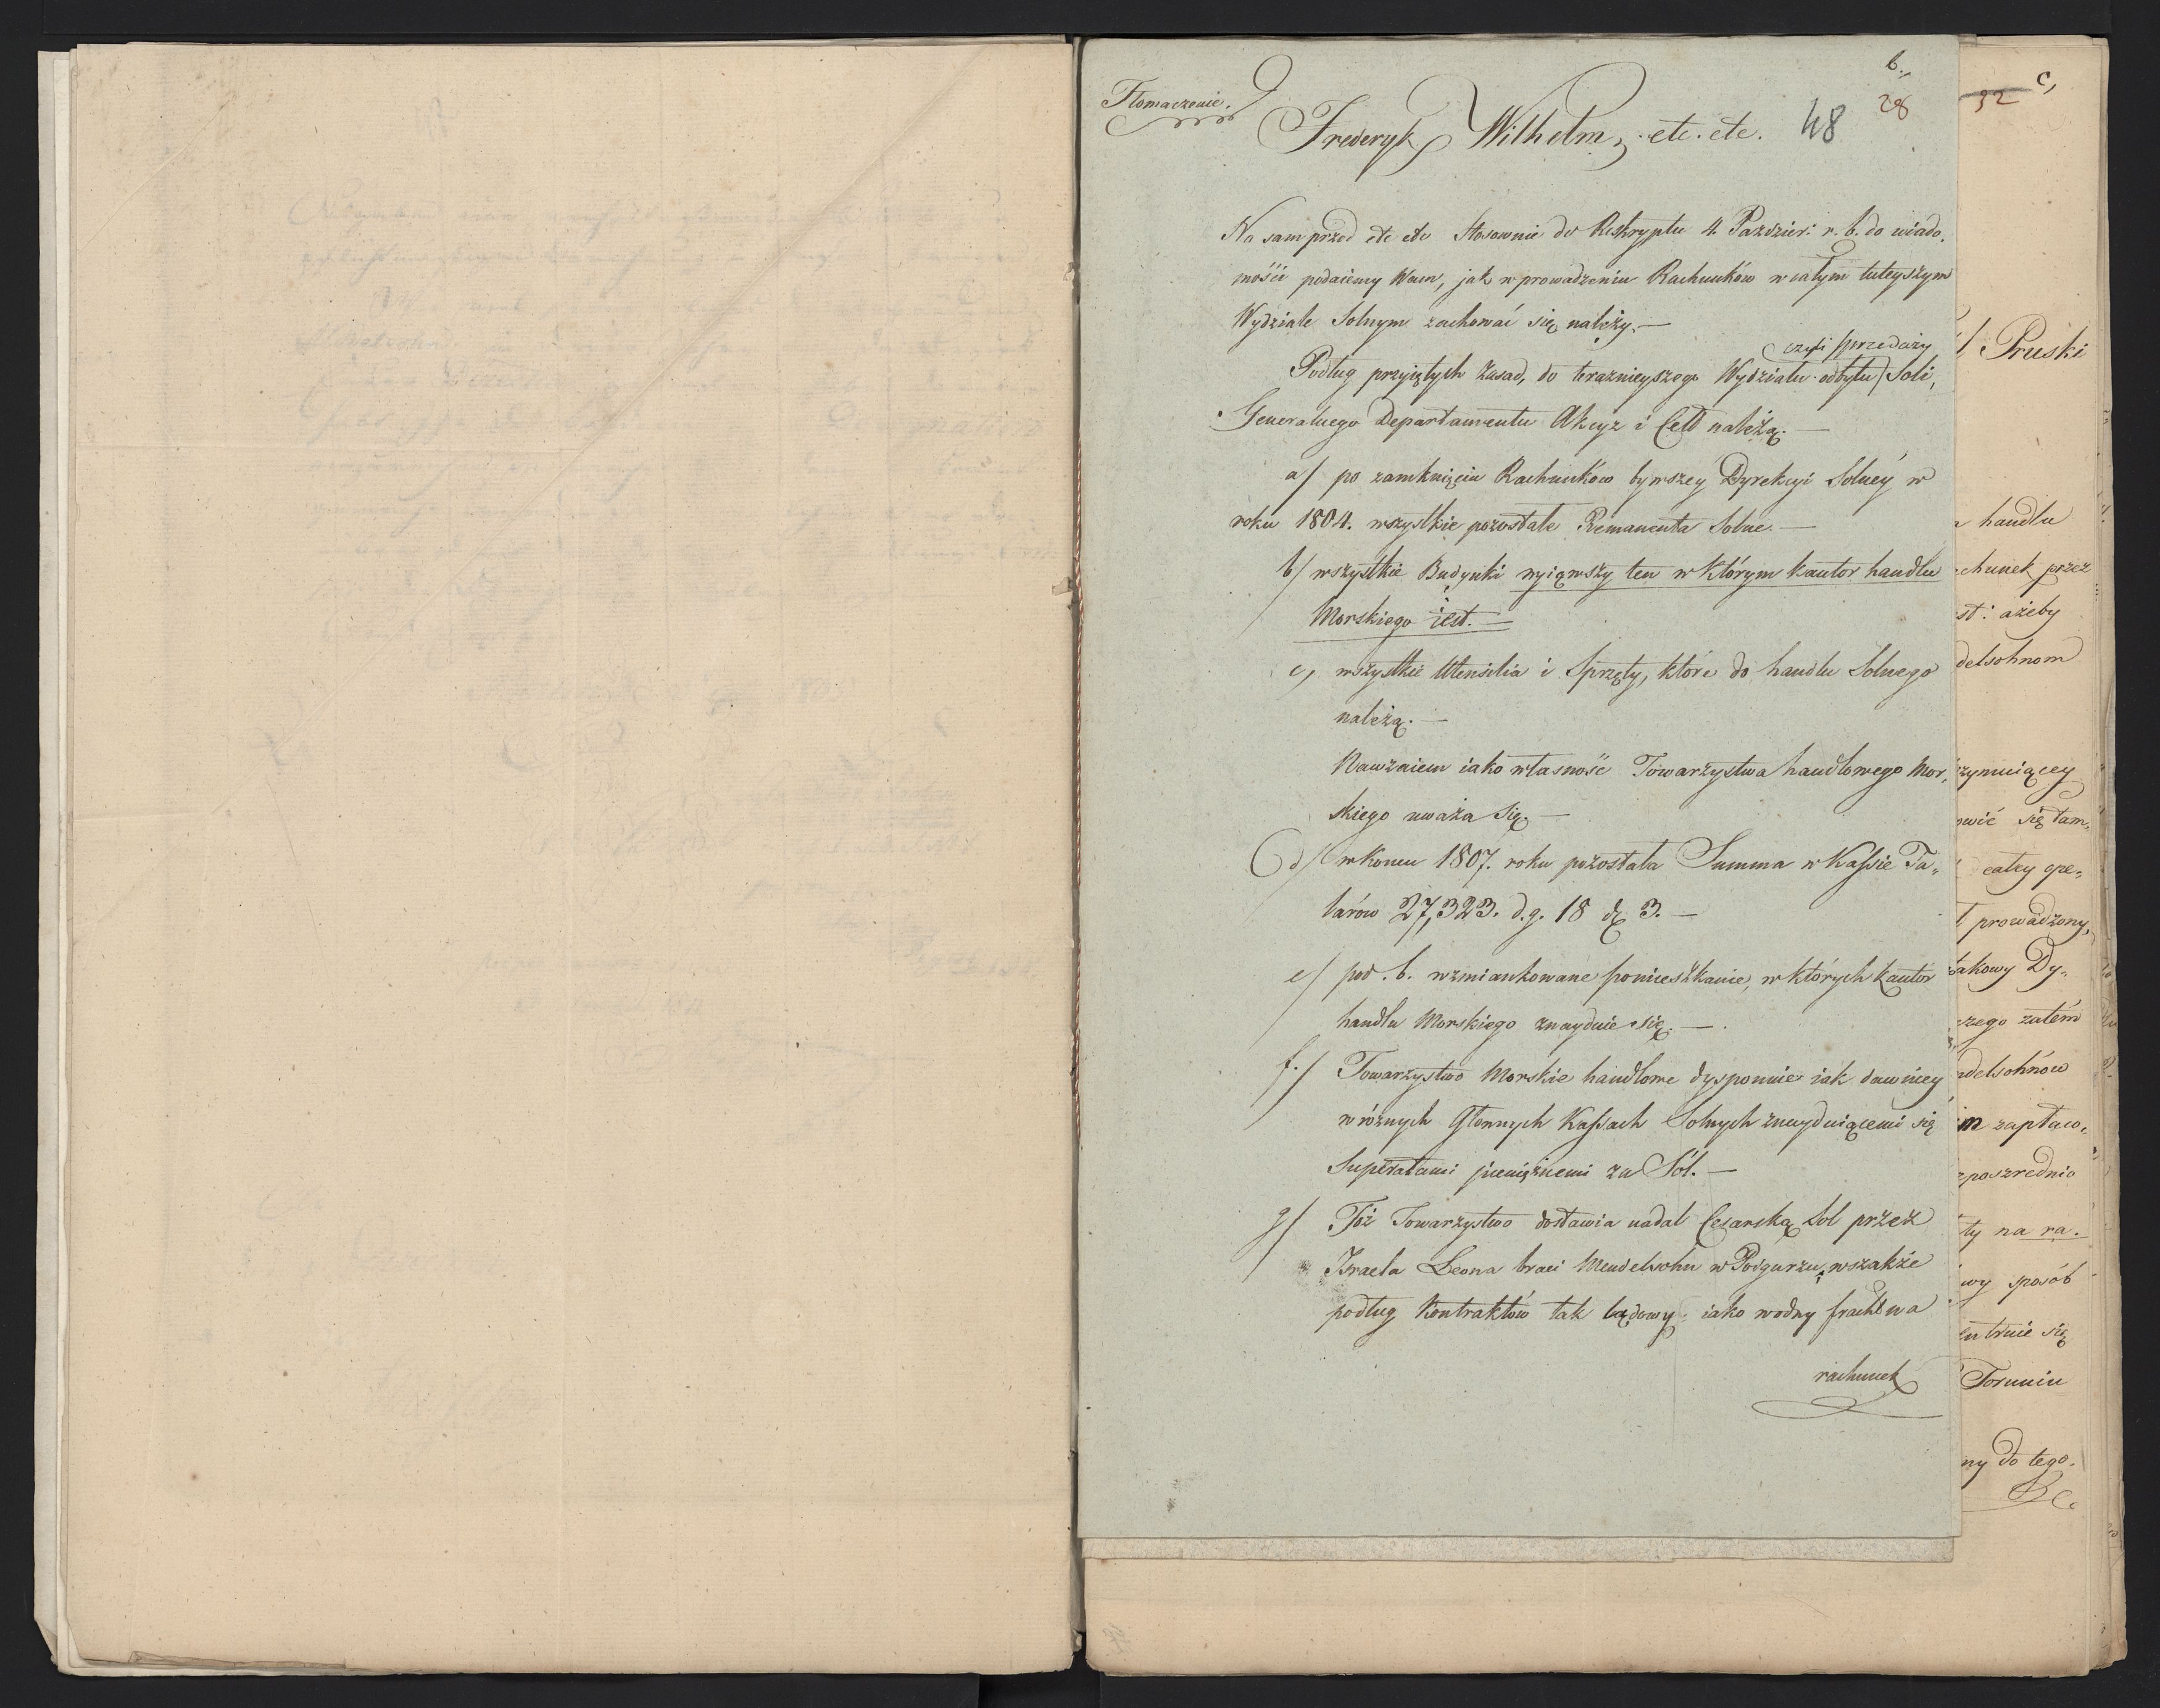 b.,
Tłomaczenie.
28
Frederyk Wilhelm, etc. etc. 48
Na sam przod etc etc Stosownie do Reskryptu 4. Paździer: r. b. do wiado,
mości podaiemy Wam, jak w prowadzeniu Rachunków w całym tuteyszym
Wydziale Solnym zachować się należy. —
czyli sprzedaży
Podług przyiętych Zasad, do terażnieyszego Wydziału odbytu Soli,
Generalnego Departamentu Akcyz i Cełł należą. —
a/ po zamknięciu Rachunków bywszey Dyrekcyi Solney w
roku 1804. wszystkie pozostałe Remanenta Solne. —
b/ wszystkie Budynki wyiąwszy ten w którym kantor handlu
Morskiego iest. —
c, wszystkie Utensilia i Sprzęty, które do handlu Solnego
należą. —
Nawzaiem iako własność Towarzystwa handlowego Mor,
skiego uważa się. —
d/ w końcu 1807. roku pozostała Summa w Kassie Ta„
larów 27,323. d.g. 18 d 3. —
e/ pod b. wzmiankowane pomieszkanie, w których kantor
handlu Morskiego znayduie się. —
f./ Towarzystwo Morskie handlowe dysponuie iak dawniey
w różnych Głownych Kassach Solnych znayduiącemi się
Superatami pieniężnemi za Sól. —
g/ Toż Towarzystwo dostawia nadal Cesarską Sol przez
Izraela Leona braci Mendelsohn w Podgurzu, wszakże
podług Kontraktów tak lądowy, iako wodny fracht na
rachunek
32 c,
Pruski
handlu
chunek przez
st: ażeby
delsohnom
zymuiącey
owić się tam„
całey ope„
prowadzony,
takowy Dy„
czego zatém
ndelsohnów
im zapłaco„
zpośrednio
ty na ra.
wy sposób
entruie się
Toruniu
ny do tego.